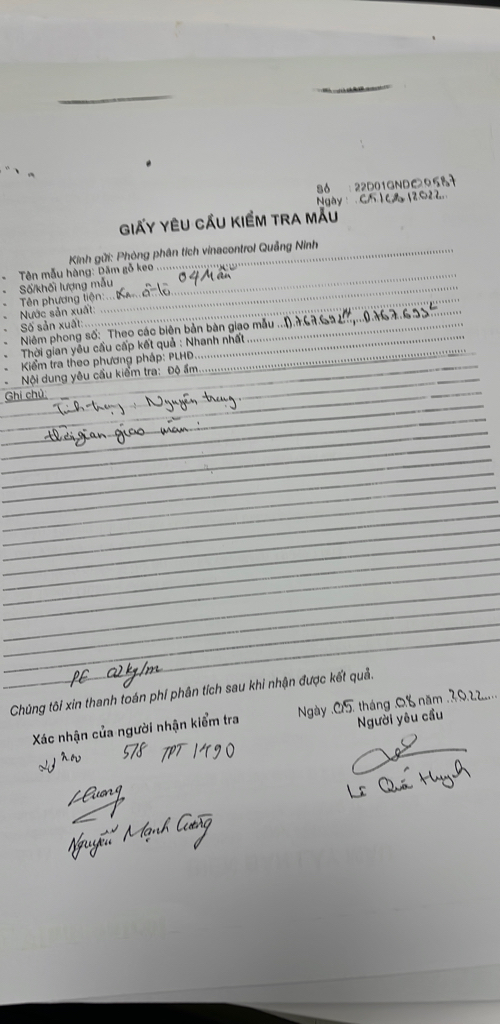 Số : 22D01GND00587
Ngày : 05/08/2022
GIẤY YÊU CẦU KIỂM TRA MẪU
Kính gửi: Phòng phân tích vinacontrol Quảng Ninh
- Tên mẫu hàng: Dăm gỗ keo
- Số/khối lượng mẫu 04 Mẫu
- Tên phương tiện: ô-tô
- Nước sản xuất:
- Số sản xuất:
- Niêm phong số: Theo các biên bản bàn giao mẫu 0.767.692, 0.767.693
- Thời gian yêu cầu cấp kết quả : Nhanh nhất
- Kiểm tra theo phương pháp: PLHD
- Nội dung yêu cầu kiểm tra: Độ ẩm
Ghi chú:
Tình trạng : Nguyên trạng.
thời gian giao mẫu :
PE 02kg/m
Chúng tôi xin thanh toán phí phân tích sau khi nhận được kết quả.
Ngày 05 tháng 08 năm 2022
Xác nhận của người nhận kiểm tra
Người yêu cầu
578 TPT 1490
Lê Quá Huynh
Nguyễn Mạnh Cường